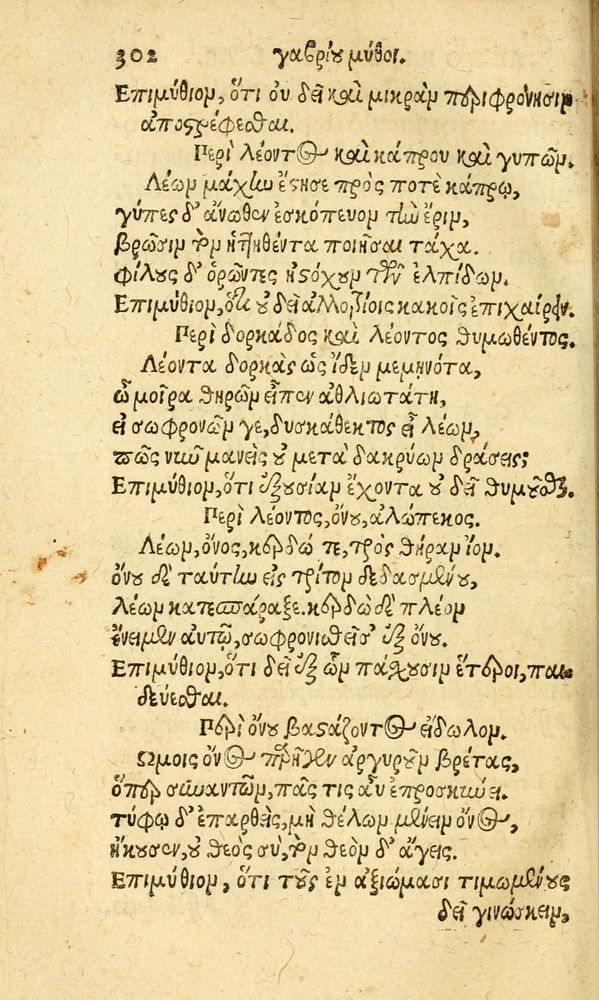 302 γαβρίου μύθοι.
Επιμύθιον, ὅτι ου δεῖ καὶ μικρὰν περιφρόνησιν
αποστρέφεσθαι.
Περὶ λέοντος καὶ κάπρου καὶ γυπῶν.
Λέων μάχην ἔστησε πρὸς ποτὲ κάπρῳ,
γύπες δ' άνωθεν ἐσκόπευον τὴν ἔριν,
βρῶσιν τὸν ἡττηθέντα ποιῆσαι τάχα.
φίλους δ' ὁρῶντες ἠστόχουν τῶν ἐλπίδων.
Επιμύθιον, ὅτι ου δεῖ αλλοτρίοις κακοῖς επιχαίρειν.
Περὶ δορκάδος καὶ λέοντος θυμωθέντος.
Λέοντα δορκὰς ὡς ἴδεν μεμηνότα,
ὦ μοῖρα θηρῶν εἶπεν αθλιωτάτη,
εἰ σωφρονῶν γε, δυσκάθεκτος εἶ λέων,
πῶς νιῦ μανεὶς ου μετὰ δακρύων δράσεις;
Επιμύθιον, ὅτι ἐξουσίαν έχοντα ου δεῖ θυμοῦσθαι.
Περὶ λέοντος, όνου, αλώπεκος.
Λέων, όνος, κερδώ τε, πρὸς θήραν ἴον.
όνου δὲ ταύτην εἰς τρίτον δεδασμένου,
λέων κατεσπάραξε. κερδὼ δὲ πλέον
ένειμεν αυτῷ, σωφρονισθεῖσ' ἐξ όνου.
Επιμύθιον, ὅτι δεῖ ἐξ ὧν πάσχουσιν ἕτεροι, παι
δεύεσθαι.
Περὶ όνου βαστάζοντος είδωλον.
Ωμοις όνος προῆγεν αργυροῦν βρέτας,
ὅπερ συναντῶν, πᾶς τις αὖ επροσκύνει.
τύφῳ δ' επαρθεὶς, μὴ θέλων μένειν όνος,
ήκουσεν, ου θεὸς σὺ, τὸν θεὸν δ' άγεις.
Επιμύθιον, ὅτι τοὺς ἐν αξιώμασι τιμωμένους
δεῖ γινώσκειν,